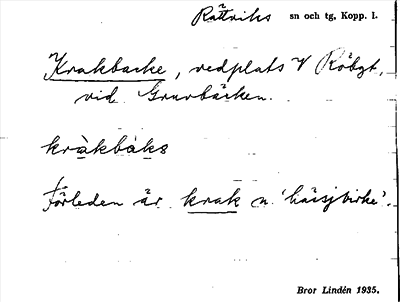 Rättviks sn och tg, Kopp. l.
Krakbacke, vedplats V Röbgt,
vid Gruvbäcken.
kràkbàks
Förleden är krak n. 'häsjvirke'.
Bror Lindén 1935.